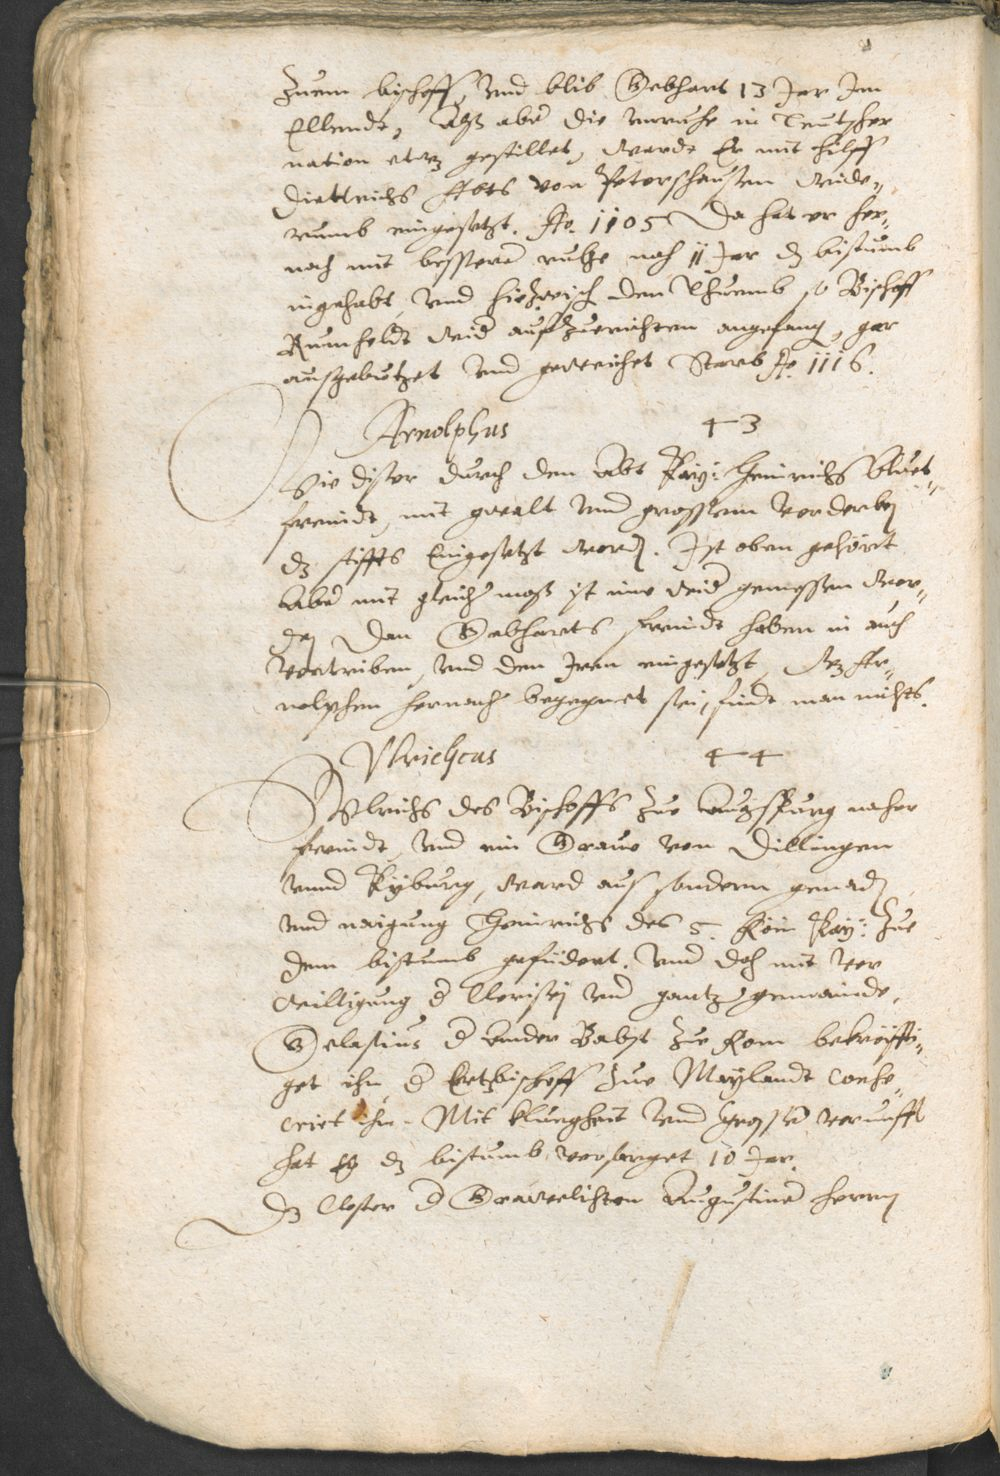 zuem bischoff, und blib Gebhart 13 Jar Im
Ellendt, Alß aber die unruhe in Teutscher
nation etwz gestillet, warde Er mit hilff
Diettrichs Abts von Petershausen wide„
rumb eingesetzt. Ao. 1105 Da hat er her„
nach mit besserer ruhe noch 11 Jar dz bistumb
ingehabt, und hiezwisch den Thuemb so Bischoff
Rumholdt wider auffzuerichten angefang, gar
außgebutzet und geweichet Starb Ao. 1116.
Arnolphus 43
Wie diser durch den Abt Kay: Heinrichs bluet„
freindt, mit gwalt und grossem verderben
dz stiffts Eingesetzt worden. Ist oben gehört
Aber mit gleicher maß ist ime wider gemessen wor„
den Dan Gebharts freindt haben in auch
vertriben, und den Iren eingesetzt, Wz Ar„
nolphen hernach begegnet sei, findt man nichts.
Ulrichus 44
Ulrichs des Bischoffs zue Augspurg naher
freindt, und ein Grave von Dillingen
unnd Kyburg, ward auß sondern genaden
und naigung Heinrichs des 5. Röm Kay: zue
dem bistumb gefürdert. und doch mit ver
willigung der Clerisey und gantzer gemainde,
Gelasius der ander Babst zue Rom bekröffti„
get ihn, der Ertzbischoff zue Maylandt conse„
criert ihn. Mit kluegheit und grosser vernufft
hat Er dz bistumb versorget 10 Jar.
Dz Closter der Grawelichten Augustiner herren